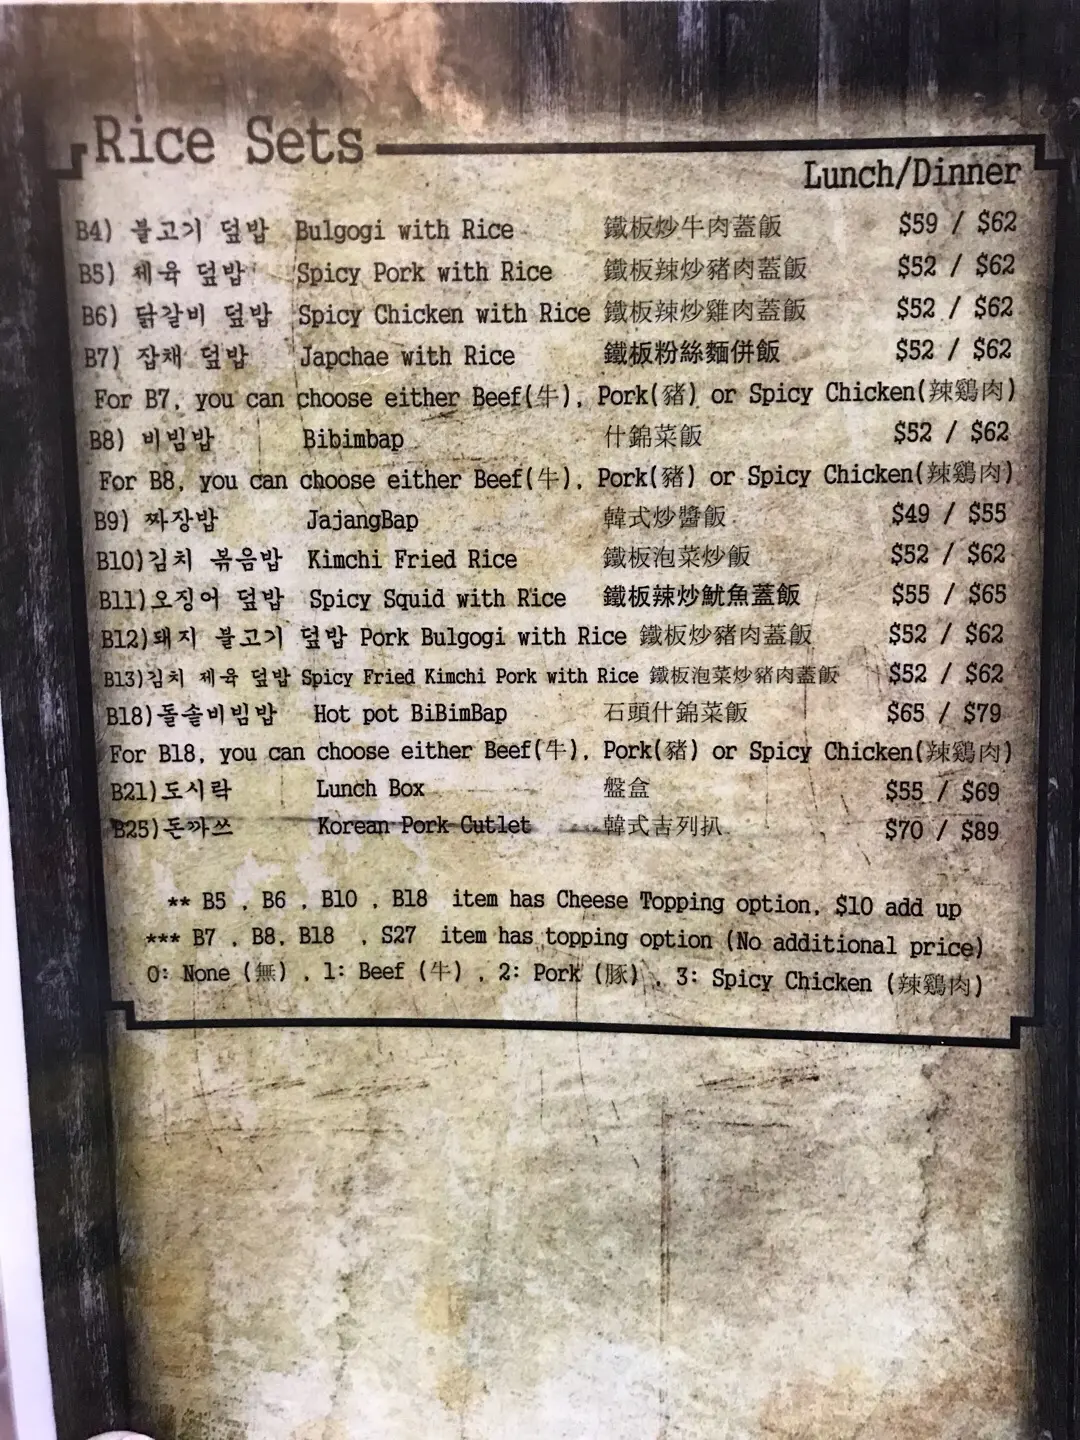 Rice Sets
Lunch/Dinner
B4) 불고기 덮밥 Bulgogi with Rice 鐵板炒牛肉蓋飯 $59 / $62
B5) 제육 덮밥 Spicy Pork with Rice 鐵板辣炒豬肉蓋飯 $52 / $62
B6) 닭갈비 덮밥 Spicy Chicken with Rice 鐵板辣炒雞肉蓋飯 $52 / $62
B7) 잡채 덮밥 Japchae with Rice 鐵板粉絲麵併飯 $52 / $62
For B7, you can choose either Beef(牛), Pork(豬) or Spicy Chicken(辣鷄肉)
B8) 비빔밥 Bibimbap 什錦菜飯 $52 / $62
For B8, you can choose either Beef(牛), Pork(豬) or Spicy Chicken(辣鷄肉)
B9) 짜장밥 JajangBap 韓式炒醬飯 $49 / $55
B10)김치 볶음밥 Kimchi Fried Rice 鐵板泡菜炒飯 $52 / $62
B11)오징어 덮밥 Spicy Squid with Rice 鐵板辣炒魷魚蓋飯 $55 / $65
B12)돼지 불고기 덮밥 Pork Bulgogi with Rice 鐵板炒豬肉蓋飯 $52 / $62
B13)김치 제육 덮밥 Spicy Fried Kimchi Pork with Rice 鐵板泡菜炒豬肉蓋飯 $52 / $62
B18)돌솥비빔밥 Hot pot BiBimBap 石頭什錦菜飯 $65 / $79
For B18, you can choose either Beef(牛), Pork(豬) or Spicy Chicken(辣鷄肉)
B21)도시락 Lunch Box 盤盒 $55 / $69
B25)돈까쓰 Korean Pork Cutlet 韓式吉列扒 $70 / $89
** B5 , B6 , B10 , B18 item has Cheese Topping option, $10 add up
*** B7 , B8, B18 , S27 item has topping option (No additional price)
0: None (無) , 1: Beef (牛) , 2: Pork (豚) , 3: Spicy Chicken (辣鷄肉)